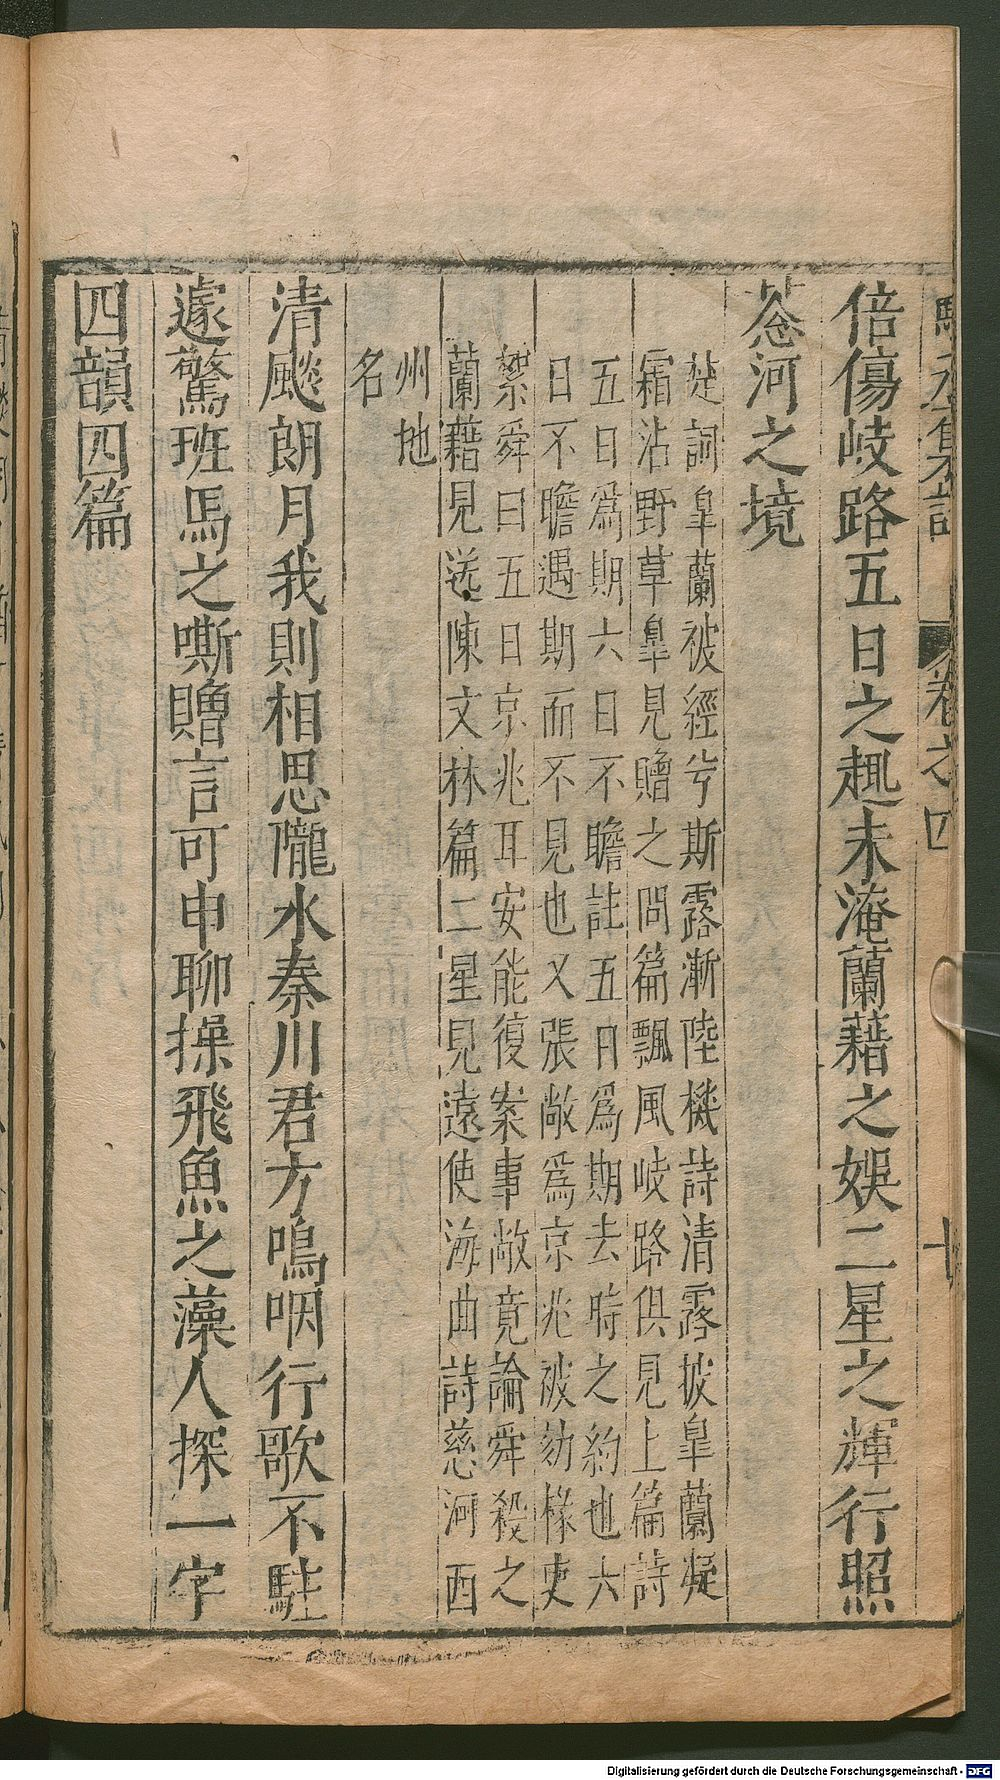 駱丞集註 卷之四 十
倍傷岐路五日之趣未淹蘭藉之娛二星之輝行照
慈河之境
楚詞皐蘭被經兮斯露漸陸機詩清露披皐蘭凝
霜沾野草皐見贈之問篇飄風岐路俱見上篇詩
五日爲期六日不瞻註五日爲期去時之約也六
日不瞻遇期而不見也又張敞爲京兆被劾掾吏
絮舜曰五日京兆耳安能復案事敞竟論舜殺之
蘭藉見送陳文林篇二星見遠使海曲詩慈河西
州地
名
清飈朗月我則相思隴水秦川君方嗚咽行歌不駐
遽驚班馬之嘶贈言可申聊操飛魚之藻人探一字
四韻四篇
Digitalisierung gefördert durch die Deutsche Forschungsgemeinschaft - DFG